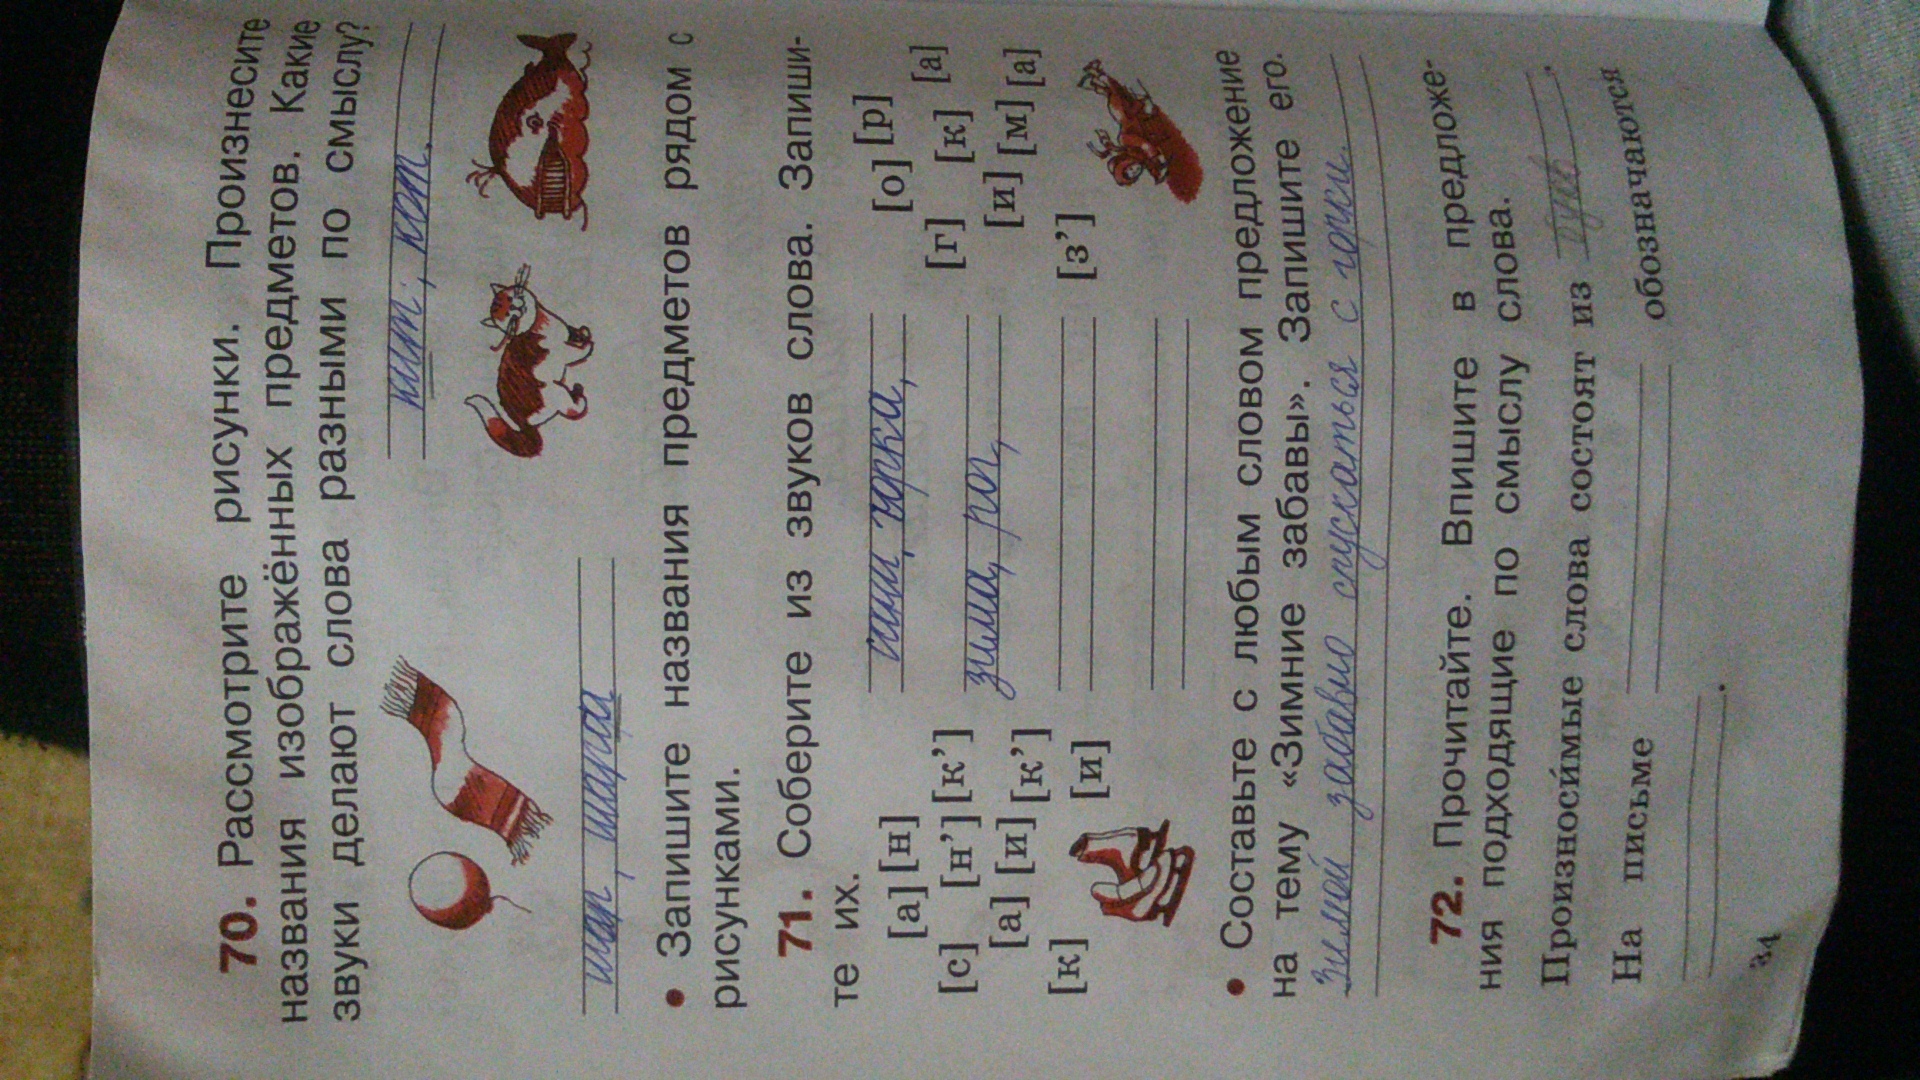 70. Рассмотрите рисунки. Произнесите
названия изображённых предметов. Какие
звуки делают слова разными по смыслу?
кит, кот.
шар, шарф
• Запишите названия предметов рядом с
рисунками.
71. Соберите из звуков слова. Запиши-
те их.
[а] [н] [о] [р]
[с] [н’] [к’] [г] [к] [а]
[а] [и] [к’] [и] [м] [а]
[к] [и] [з’]
горка,
зима,
• Составьте с любым словом предложение
на тему «Зимние забавы». Запишите его.
Зимой забавно спускаться с горки.
72. Прочитайте. Впишите в предложе-
ния подходящие по смыслу слова.
Произноси́мые слова состоят из .
На письме обозначаются
.
34